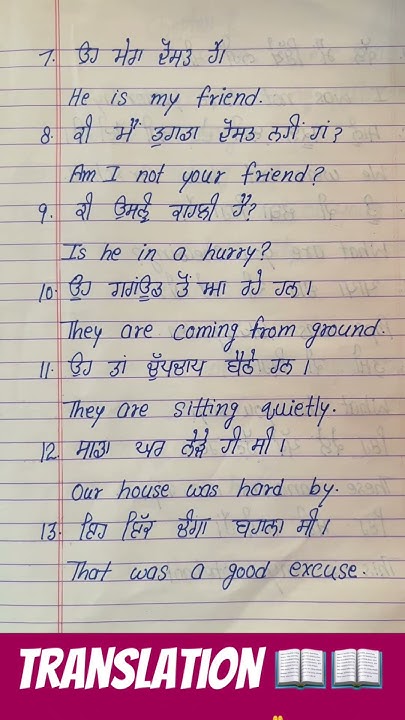 7. ਉਹ ਮੇਰਾ ਦੋਸਤ ਹੈ।
He is my friend.
8. ਕੀ ਮੈਂ ਤੁਹਾਡਾ ਦੋਸਤ ਨਹੀਂ ਹਾਂ?
Am I not your friend?
9. ਕੀ ਉਸਨੂੰ ਕਾਹਲੀ ਹੈ?
Is he in a hurry?
10. ਉਹ ਗਰਾਂਊਂਡ ਤੋਂ ਆ ਰਹੇ ਹਨ।
They are coming from ground.
11. ਉਹ ਤਾਂ ਚੁੱਪਚਾਪ ਬੈਠੇ ਹਨ।
They are sitting quietly.
12. ਸਾਡਾ ਘਰ ਨੇੜੇ ਹੀ ਸੀ।
Our house was hard by.
13. ਇਹ ਇੱਕ ਚੰਗਾ ਬਹਾਨਾ ਸੀ।
That was a good excuse.
TRANSLATION